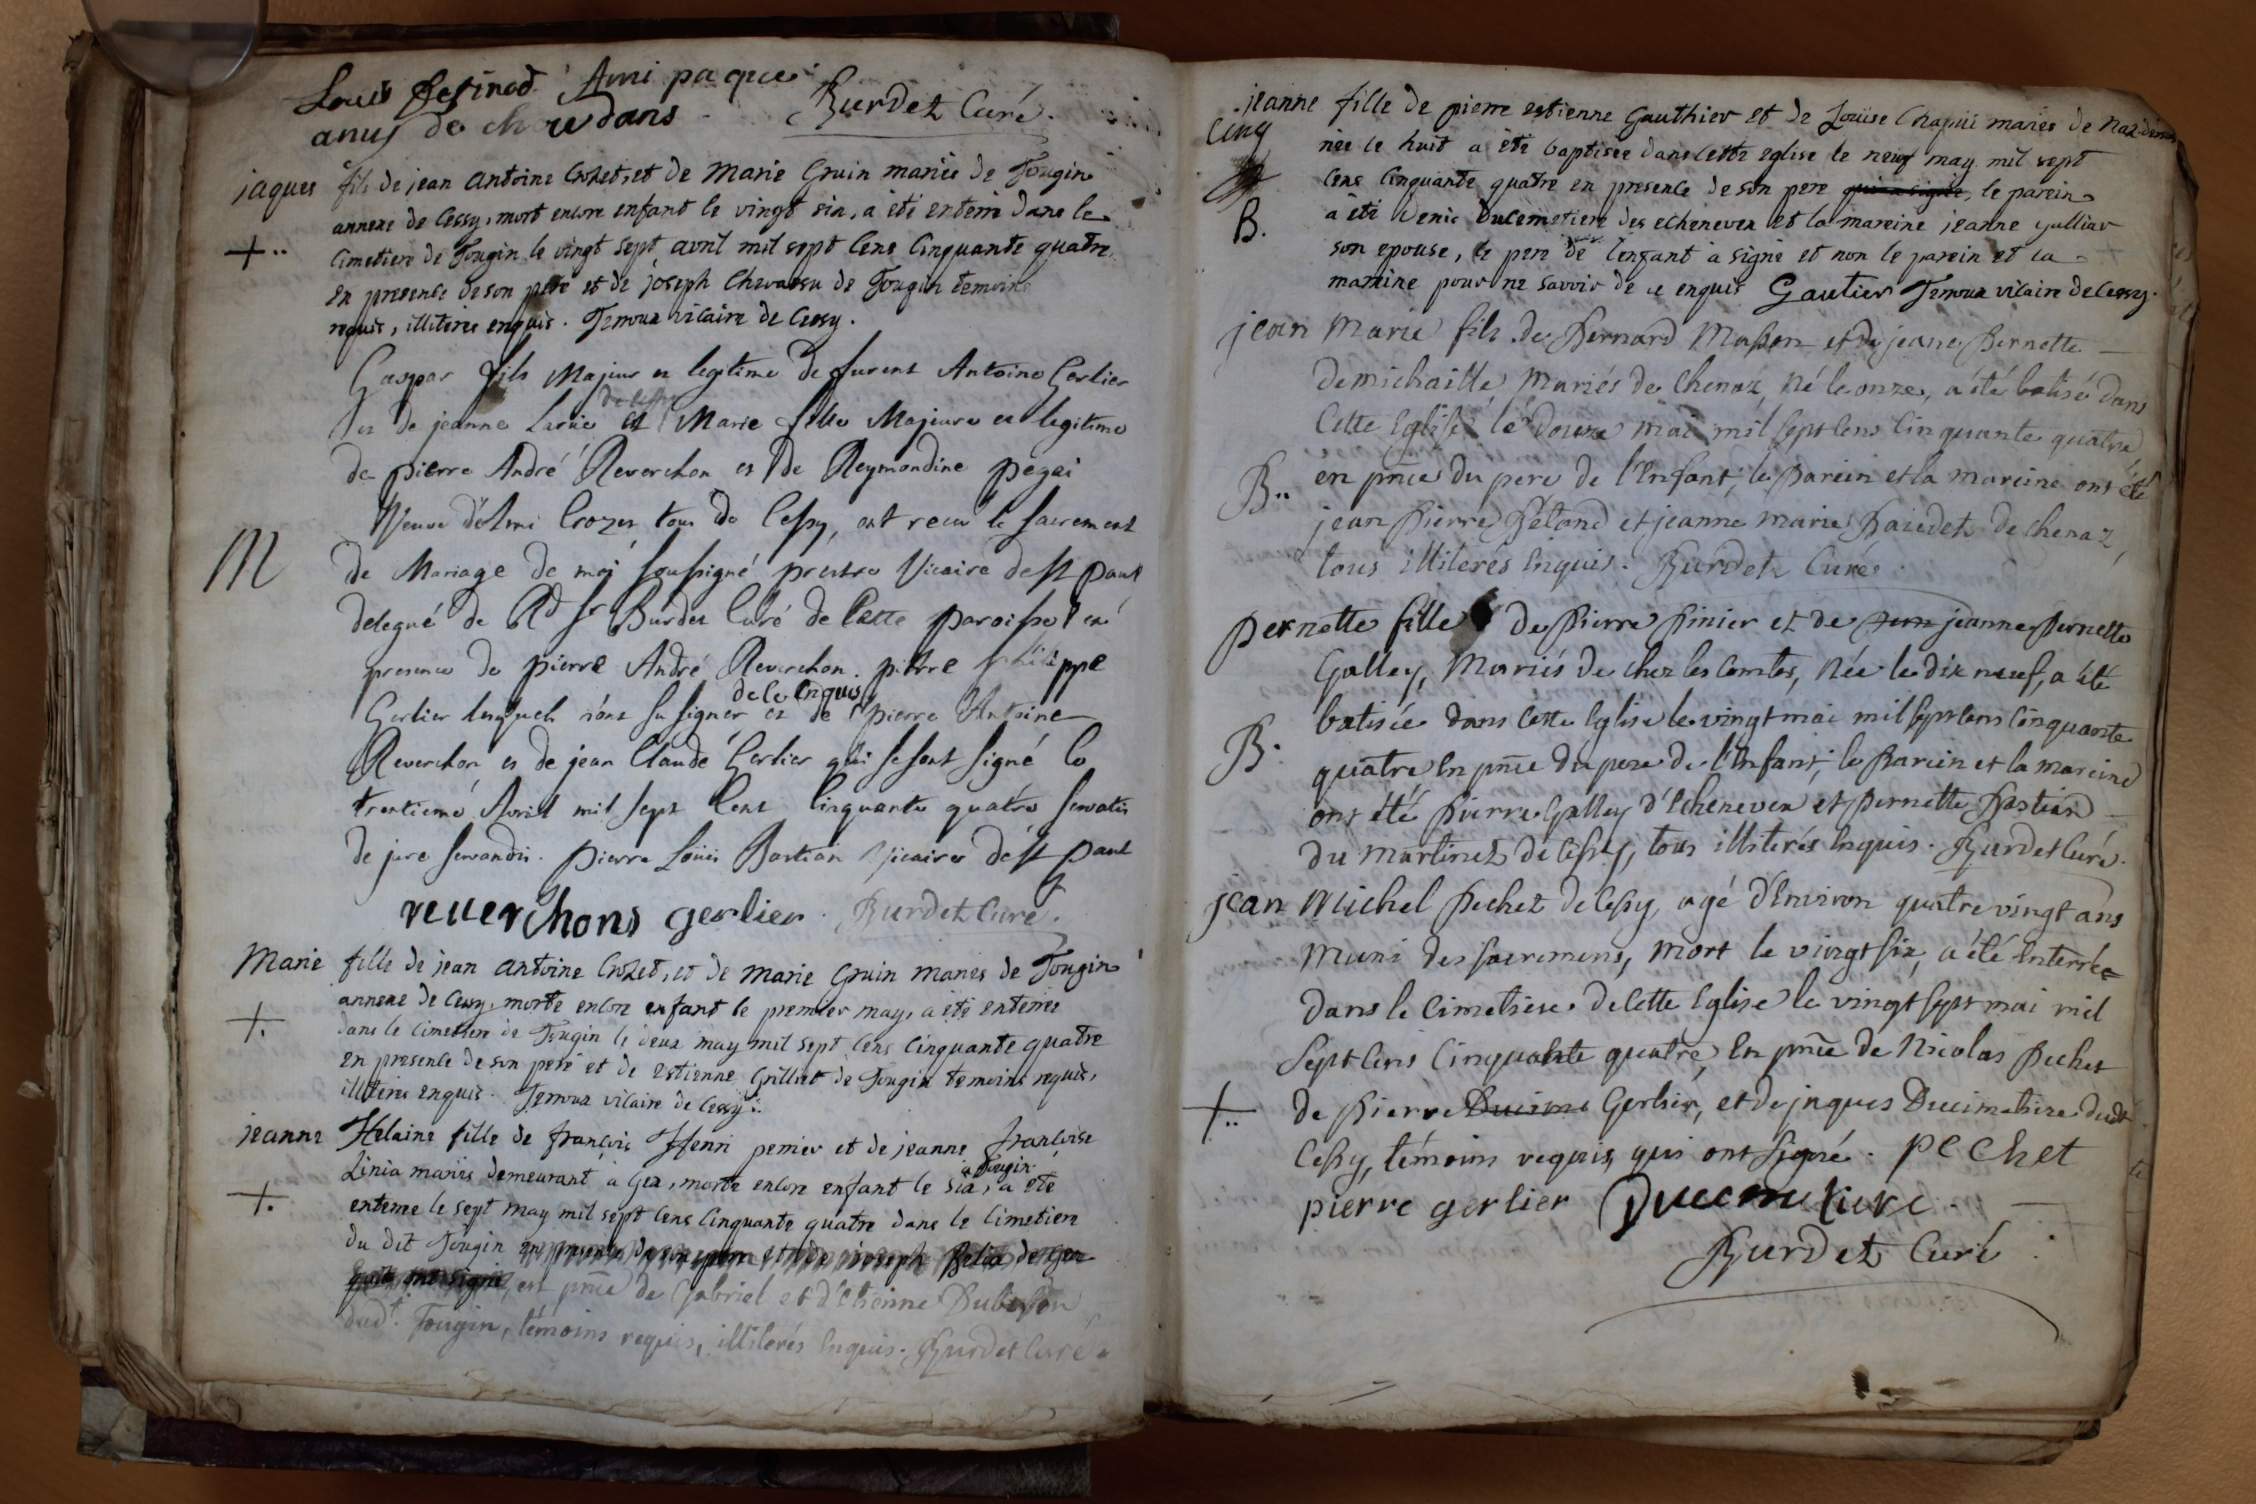 Louis Ami paque
anus de Burdet Curé.
jaques fils de jean antoine Crozet, et de Marie Gruin mariés de Tougin
annexe de Cessy, mort encore enfant le vingt six, a été enterré dans le
+.. cimetiere de Tougin le vingt sept avril mil sept cens cinquante quatre,
en presence de son pere et de joseph de Tougin temoins
requis, illiteres enquis. vicaire de Cessy.
Gaspar fils Majeur et legitime de furent Antoine Gerlier
de Cessy
et de jeanne Larüe et Marie fille Majeure et legitime
de pierre André Reverchon et de Reymondine pegai
Veuve d'Ami Crozet tous de Cessy, ont receu le sacrement
M de Mariage de moi soussigné prestre Vicaire de St paul
delegué de Rd Sr Burdet Curé de Cette paroisse en
presence de pierre André Reverchon. pierre philippe
de ce enquis
Gerlier lesquels n'ont su signer et de pierre Antoine
Reverchon et de jean Claude Gerlier qui se sont signé le
trentieme Avril mil sept Cent Cinquante quatre servatis
de jure servandis. pierre Loüis Bastian Vicaire de St paul
reuerchons gerlier. Burdet Curé.
Marie fille de jean antoine Crozet, et de Marie Gruin mariés de Tougin
annexe de Cessy, morte encore enfant le premier may, a été enterrée
+. dans le cimetiere de Tougin le deux may mil sept cens cinquante quatre
en presence de son pere et de estienne Grillet de Tougin temoins requis,
illiteres enquis. vicaire de Cessy.
jeanne Helaine fille de françois Henri perrier et de jeanne françoise
à Tougin
Linia mariés demeurant à Gex, morte encore enfant le six, a été
+. enterree le sept may mil sept cens cinquante quatre dans le cimetiere
du dit Tougin en presence de son pere et de joseph de gex
qui ont signé, en pnce de Gabriel et d'Etienne Dubisson
dudt. Tougin, témoins requis, illiterés Enquis. Burdet Curé.
jeanne fille de pierre estienne Gauthier et de Loüise Chapui mariés de
cinq née le huit a été baptisée dans cette eglise le neuf may mil sept
cens cinquante quatre en presence de son pere qui a signé, le parein
B. a été Denis Ducemetiere des echenevex et la mareine jeanne
son epouse, le pere de l'enfant a signé et non le parein et la
mareine pour ne savoir de ce enquis Gautier vicaire de Cessy.
jean Marie fils de Bernard Masson et de jeane Pernette
demichaille, Mariés de Chenaz, Né le onze, a été batisé dans
Cette Eglise le douze mai mil sept Cens Cinquante quatre
B.. en pnce du pere de l'Enfant, le Parein et la mareine ont été
jean Pierre et jeanne marie de Chenaz,
tous illiterés Enquis. Burdet Curé.
pernette fille de Pierre Pinier et de jeanne Pernette
Galley, Mariés de chez les Comtes, Née le dix neuf, a été
batisée dans Cette Eglise le vingt mai mil sept Cens Cinquante
B. quatre En pnce du pere de l'Enfant, le Parein et la mareine
ont été Pierre Galley d'Echenevex et Pernette Bastian
du Martinet de Cessy, tous illiterés Enquis. Burdet Curé.
jean Michel Pechet de Cessy, agé d'Environ quatre vingt ans
Muni des sacremens, mort le vingt six, a été Enterrée
dans le Cimetiere de Cette Eglise le vingt sept mai mil
sept Cens Cinquante quatre, En pnce de Nicolas Pechet
+.. de Pierre Gerlier, et de jaques Ducimetiere dudt
Cessy, témoins requis, qui ont signé. pechet
pierre gerlier Ducemetiere.
Burdet Curé